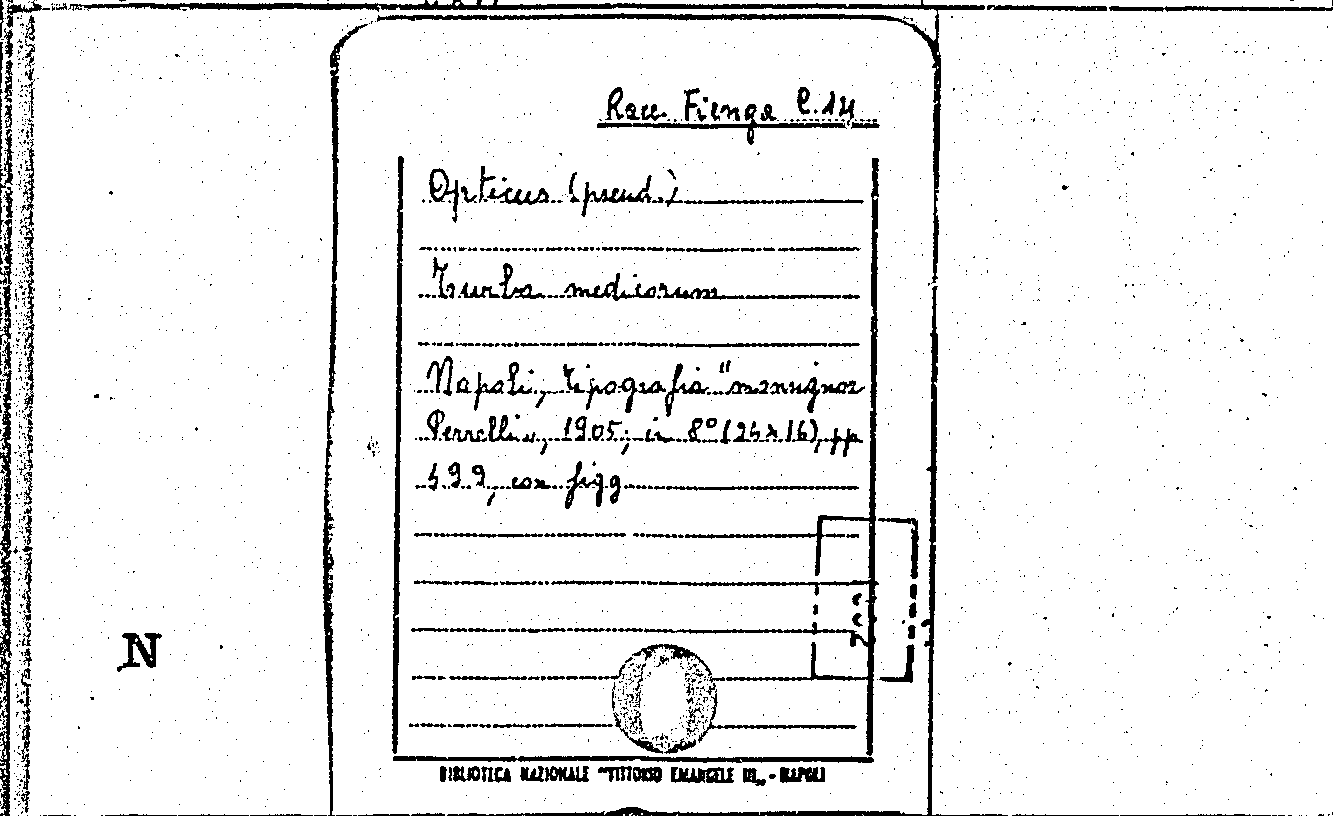 Racc. Fienga C.14
Opticus (pseud.)
Turba medicorum
Napoli, tipografia "monsignor
Perrelli", 1905; in 8° (25x16), pp
599, con figg
N
BIBLIOTECA NAZIONALE "VITTORIO EMANUELE III" - NAPOLI